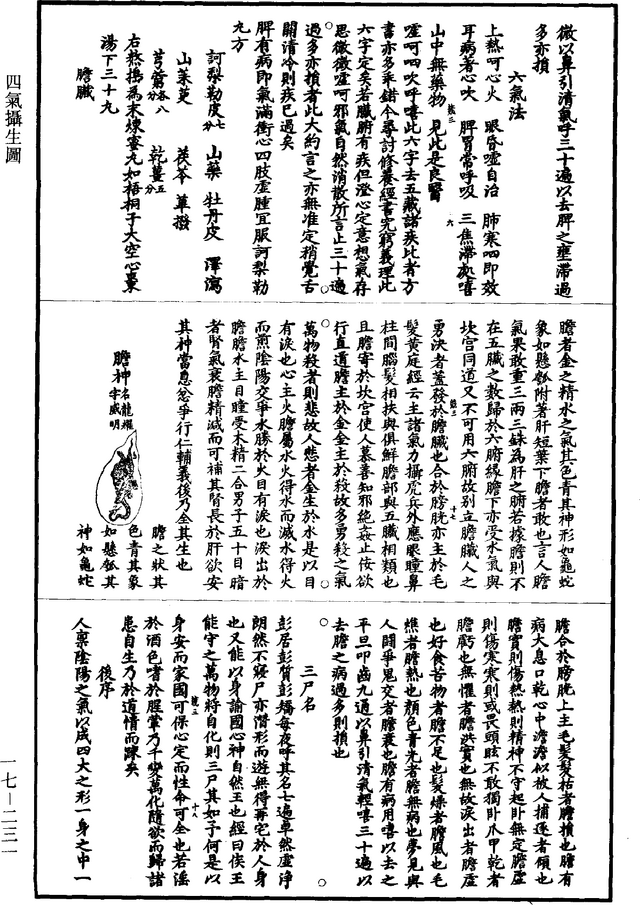 四氣攝生圖
微以鼻引清氣呼三十遍以去脾之壅滯過
多亦損
六氣法
上熱呵心火 眼昏噓自治 肺寒呬即效
耳病著心吹 脾胃常呼吸 三焦滯及嘻
山中無藥物 見此是良醫
噓呵呬吹呼嘻此六字去五藏諸疾比者方
書亦多乖錯今尋討修養經書究窮義理此
六字定矣若臟腑有疾但澄心定意想氣存
思微微噓呵邪氣自然消散所言止三十遍
過多亦損者此大約言之亦無准定稍覺舌
關清冷則疾已過矣
脾有病即氣滿衝心四肢虛腫宜服訶梨勒
丸方
訶梨勒皮七分 山藥 牡丹皮 澤瀉
山茱萸 茯苓 蓽撥
芎藭各八分 乾薑五分
右熬搗為末煉蜜丸如梧桐子大空心棗
湯下三十丸
膽臟
膽者金之精水之氣其色青其神形如龜蛇
象如懸瓠附著肝短葉下膽者敢也言人膽
氣果敢重三兩三銖為肝之腑若據膽則不
在五臟之數歸於六腑緣膽下亦受水氣與
坎宮同道又不可用六腑故別立膽臟人之
勇決者蓋發於膽臟也合於膀胱亦主於毛
髮黃庭經云主諸氣力攝虎兵外應眼瞳鼻
柱間腦髮相扶與俱鮮膽部與五臟相類也
且膽寄於坎宮使人慕善知邪絕姦止佞欲
行直道膽主於金金主於殺故多勇殺之氣
萬物殺者則悲故人悲者金生於水是以目
有淚也心主火膽屬水火得水而滅水得火
而煎陰陽交爭水勝於火目有淚也淚出於
膽膽水主目瞳受木精二合男子五十目暗
者腎氣衰膽精減而可補其腎長於肝欲安
其神當息忿爭行仁輔義後乃全其生也
膽神名龍耀字威明
膽之狀其
色青其象
如懸瓠其
神如龜蛇
膽合於膀胱上主毛髮髮枯者膽損也膽有
病大息口乾心中澹澹似被人捕逐者須也
膽實則傷熱熱則精神不守起臥無定膽虛
則傷寒寒則或畏頭眩不敢獨臥爪甲乾者
膽虧也無懼者膽洪實也無故淚出者膽虛
也好食苦物者膽不足也髮燥者膽風也毛
燋者膽熱也顏色青光者膽無病也夢見與
人鬪爭鬼交者膽衰也膽有病用嘻以去之
平旦叩齒九通以鼻引清氣輕嘻三十遍以
去膽之病過多則損也
三尸名
彭居彭質彭矯每夜呼其名七遍卓然虛淨
朗然不寢尸亦潛形而遊無得再宅於人身
也又能以身諭國心神自然王也經曰侯王
能守之萬物將自化則三尸其如予何是以
身安而家國可保心定而性命可全也若淫
於酒色嗜於腥葷乃千變萬化隨欲而歸諸
患自生乃於道情而踈矣
後序
人稟陰陽之氣以成四大之形一身之中一
一七—二三一